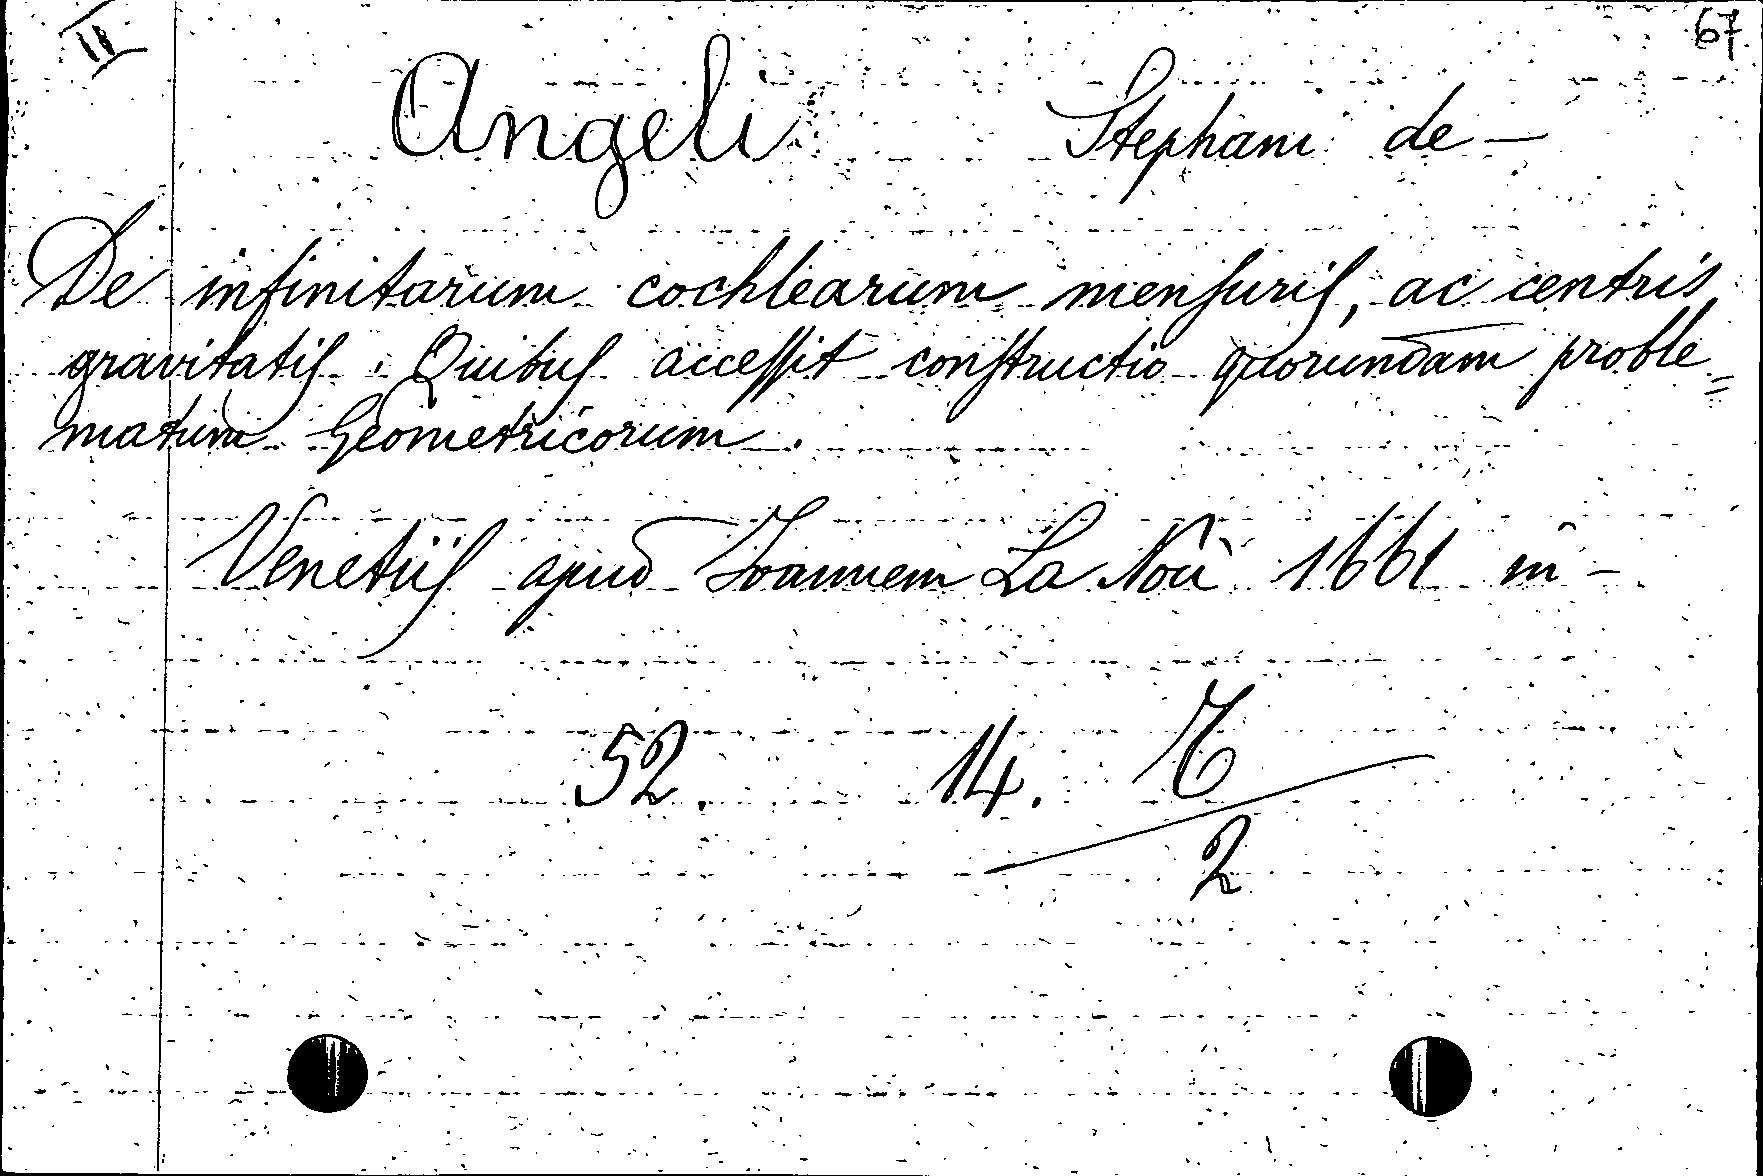 II 67
Angeli Stephani de —
De infinitarum cochlearum menſuriſ, ac centris
gravitatiſ. Quibuſ acceſſit conſtructio quorundam proble=
matum Geometricorum.
Venetiiſ apud Joannem La Noù 1661 in –
52. 14. 
2